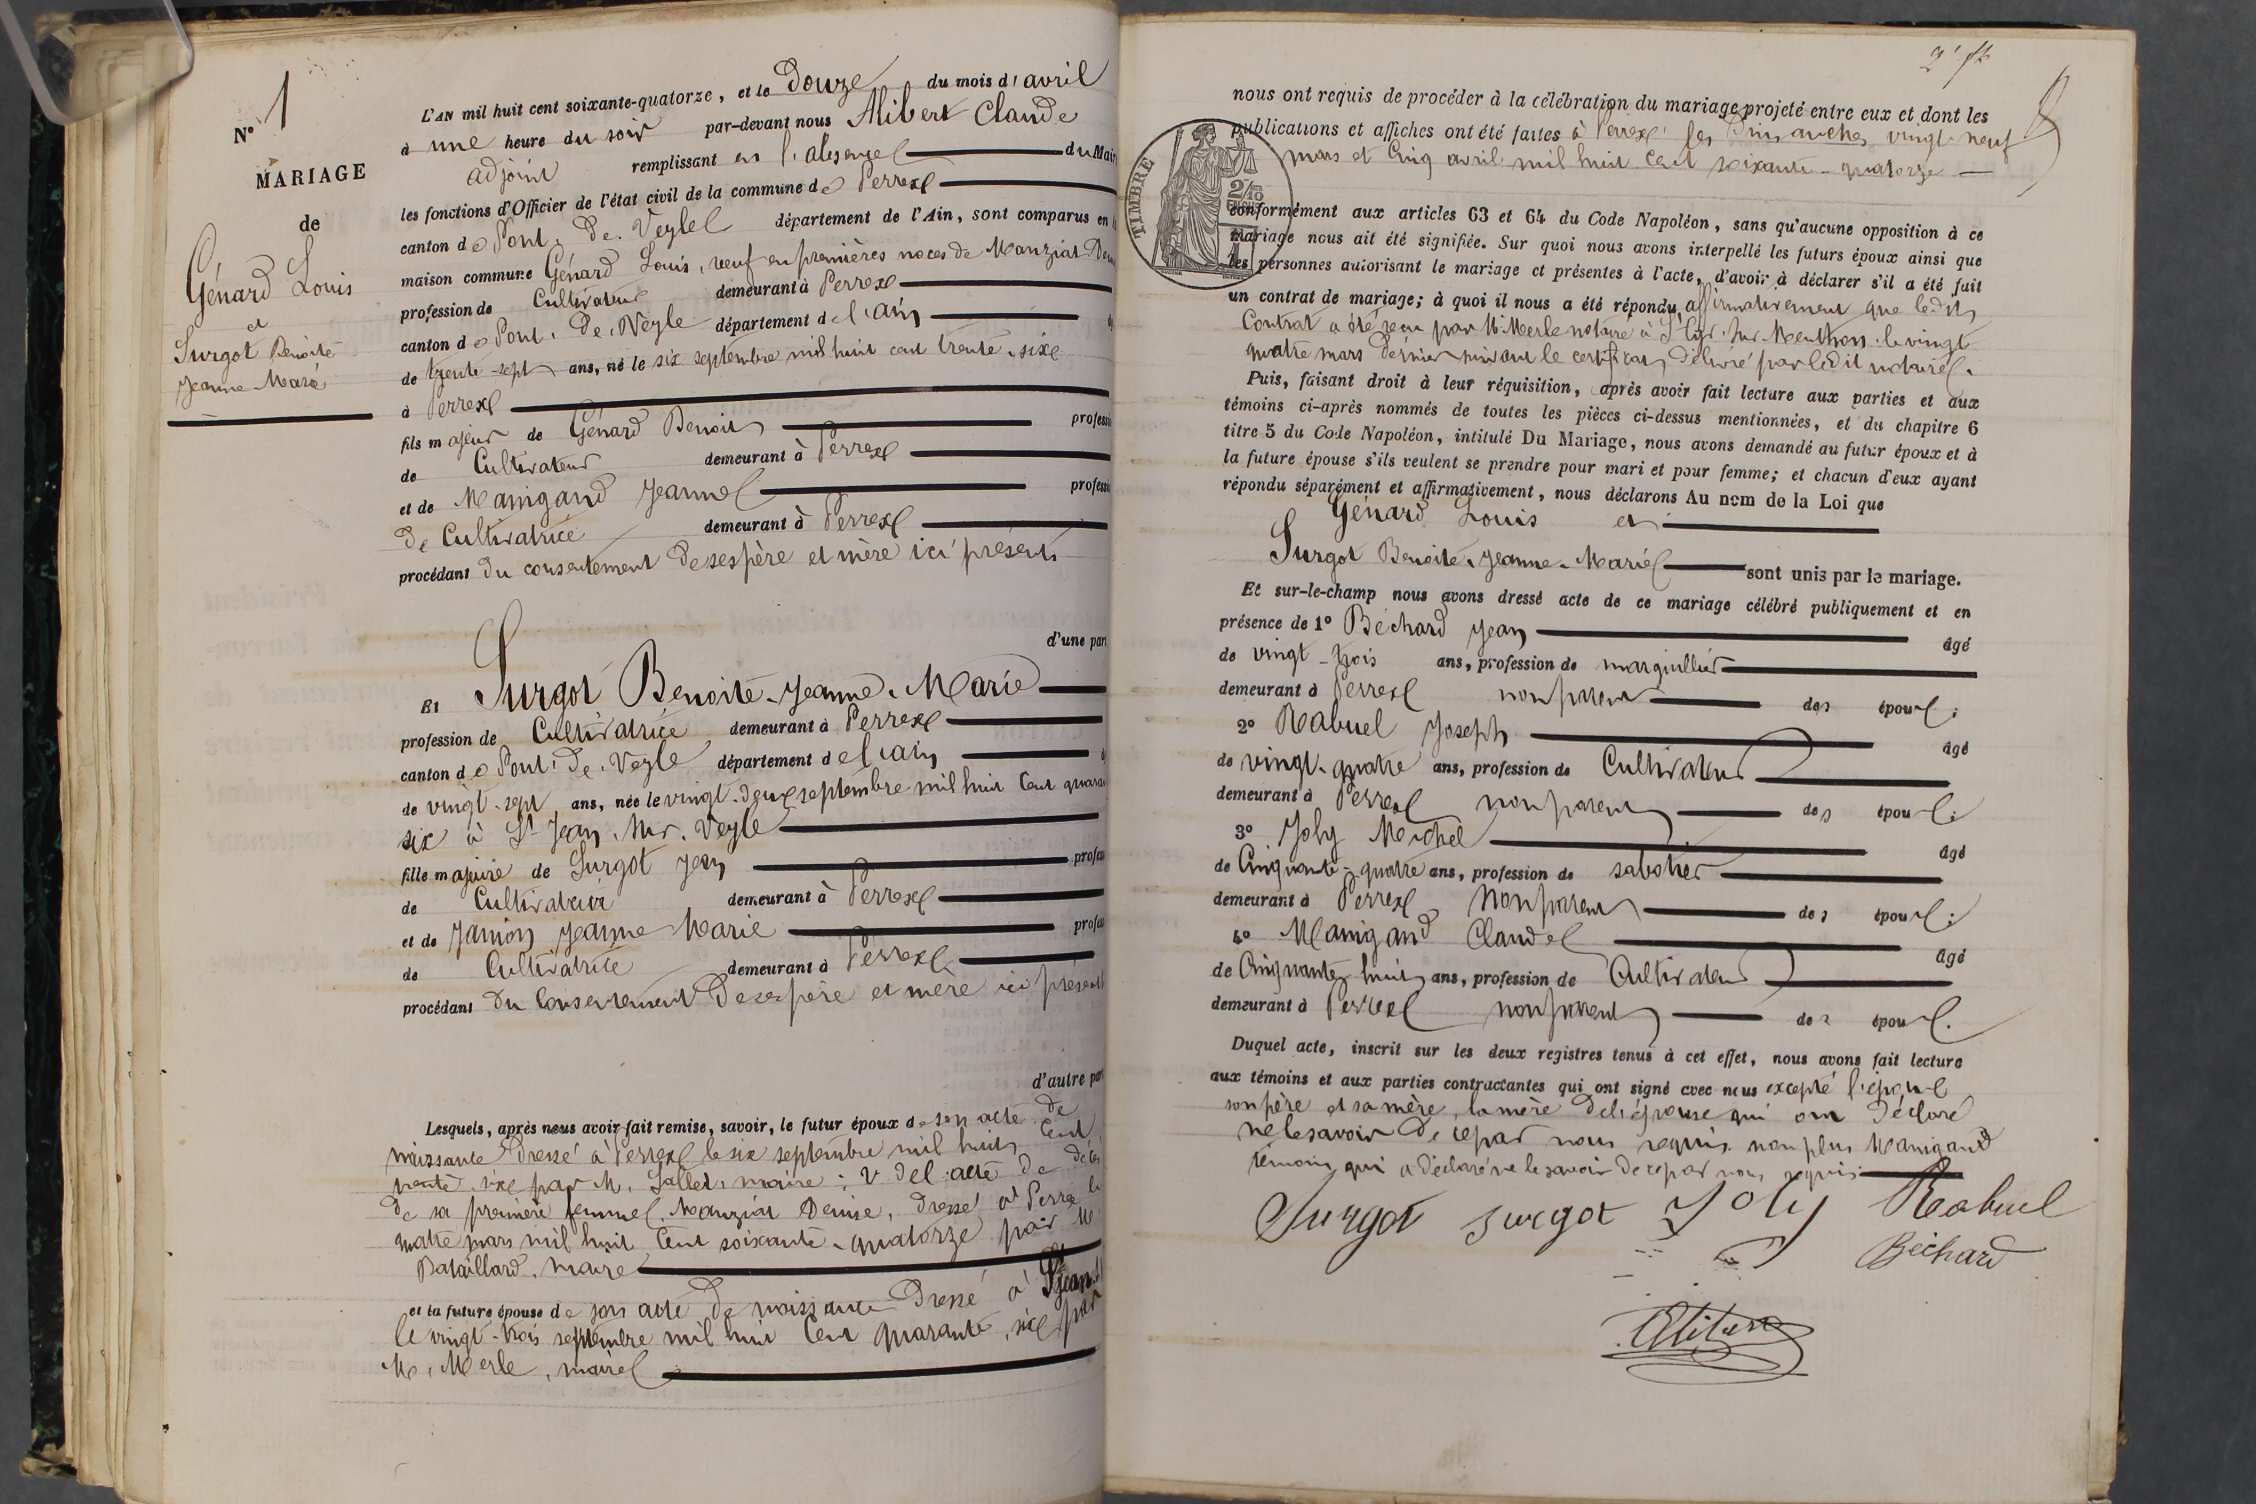 N° 1
MARIAGE
de
Génard Louis
et
Surgot Benoite
Jeanne-Marie
L'AN mil huit cent soixante-quatorze, et le Douze du mois d'avril
à une heure du soir par-devant nous Alibert Claude
adjoint remplissant en l'absence du Mair
les fonctions d'Officier de l'état civil de la commune de Perrex
canton de Pont-De-Veyle département de l'Ain, sont comparus en
maison commune Génard Louis, veuf en premières noces de Manziat
profession de Cultivateur demeurant à Perrex
canton de Pont-De-Veyle département de l'ain
de trente-sept ans, né le six septembre mil huit cent trente-six
à Perrex
fils majeur de Génard Benoit professi
de Cultivateur demeurant à Perrex
et de Manigand Jeanne professi
de Cultivatrice demeurant à Perrex
procédant du consentement de ses père et mère ici présents
d'une par
Et Surgot Benoite-Jeanne-Marie
profession de Cultivatrice demeurant à Perrex
canton de Pont-De-Veyle département de l'ain
de vingt-sept ans, née le vingt-deux septembre mil huit Cent quaran
six à St Jean-sur-Veyle
fille majeure de Surgot Jean profes
de Cultivateur demeurant à Perrex
et de Janion Jeanne Marie profes
de Cultivatrice demeurant à Perrex
procédant du Consentement De ses père et mère ici présents
d'autre par
Lesquels, après nous avoir fait remise, savoir, le futur époux de son acte de
naissance Dressé à Perrex le six septembre mil huit Cent
trente-six par M. Sallet, maire; & de l'acte de décès
De sa première femme, Manziat Denise, Dressé à Perrex le
quatre mars mil huit Cent soixante-quatorze par M.
Bataillard, maire
et la future épouse de son acte De naissance Dressé à St Jean
le vingt-trois septembre mil huit Cent quarante-six par
M. Merle, maire
nous ont requis de procéder à la célébration du mariage projeté entre eux et dont les
publications et affiches ont été faites à Perrex les Dimanches vingt-neuf
mars et Cinq avril mil huit Cent soixante-quatorze
TIMBRE
conformément aux articles 63 et 64 du Code Napoléon, sans qu'aucune opposition à ce
mariage nous ait été signifiée. Sur quoi nous avons interpellé les futurs époux ainsi que
les personnes autorisant le mariage et présentes à l'acte, d'avoir à déclarer s'il a été fait
un contrat de mariage; à quoi il nous a été répondu affirmativement que ledit
Contrat a été reçu par M. Merle notaire à St Cyr-sur-Menthon le vingt
quatre mars Dernier suivant le certificat délivré par ledit notaire.
Puis, faisant droit à leur réquisition, après avoir fait lecture aux parties et aux
témoins ci-après nommés de toutes les pièces ci-dessus mentionnées, et du chapitre 6
titre 5 du Code Napoléon, intitulé Du Mariage, nous avons demandé au futur époux et à
la future épouse s'ils veulent se prendre pour mari et pour femme; et chacun d'eux ayant
répondu séparément et affirmativement, nous déclarons Au nom de la Loi que
Génard Louis et
Surgot Benoite-Jeanne-Marie sont unis par le mariage.
Et sur-le-champ nous avons dressé acte de ce mariage célébré publiquement et en
présence de 1° Béchard Jean âgé
de vingt-trois ans, profession de marguillier
demeurant à Perrex non parent des époux;
2° Rabuel Joseph âgé
de vingt-quatre ans, profession de Cultivateur
demeurant à Perrex non parent des époux;
3° Joly Michel âgé
de Cinquante-quatre ans, profession de sabotier
demeurant à Perrex non parent des époux;
4° Manigand Claude âgé
de Cinquante huit ans, profession de Cultivateur
demeurant à Perrex non parent des époux.
Duquel acte, inscrit sur les deux registres tenus à cet effet, nous avons fait lecture
aux témoins et aux parties contractantes qui ont signé avec nous excepté l'époux
son père et sa mère, la mère de l'épouse qui ont Déclaré
ne le savoir De ce par nous requis non plus Manigand
témoin qui a déclaré ne le savoir de ce par nous requis
Surgot surgot Joly Rabuel
Béchard
Alibert